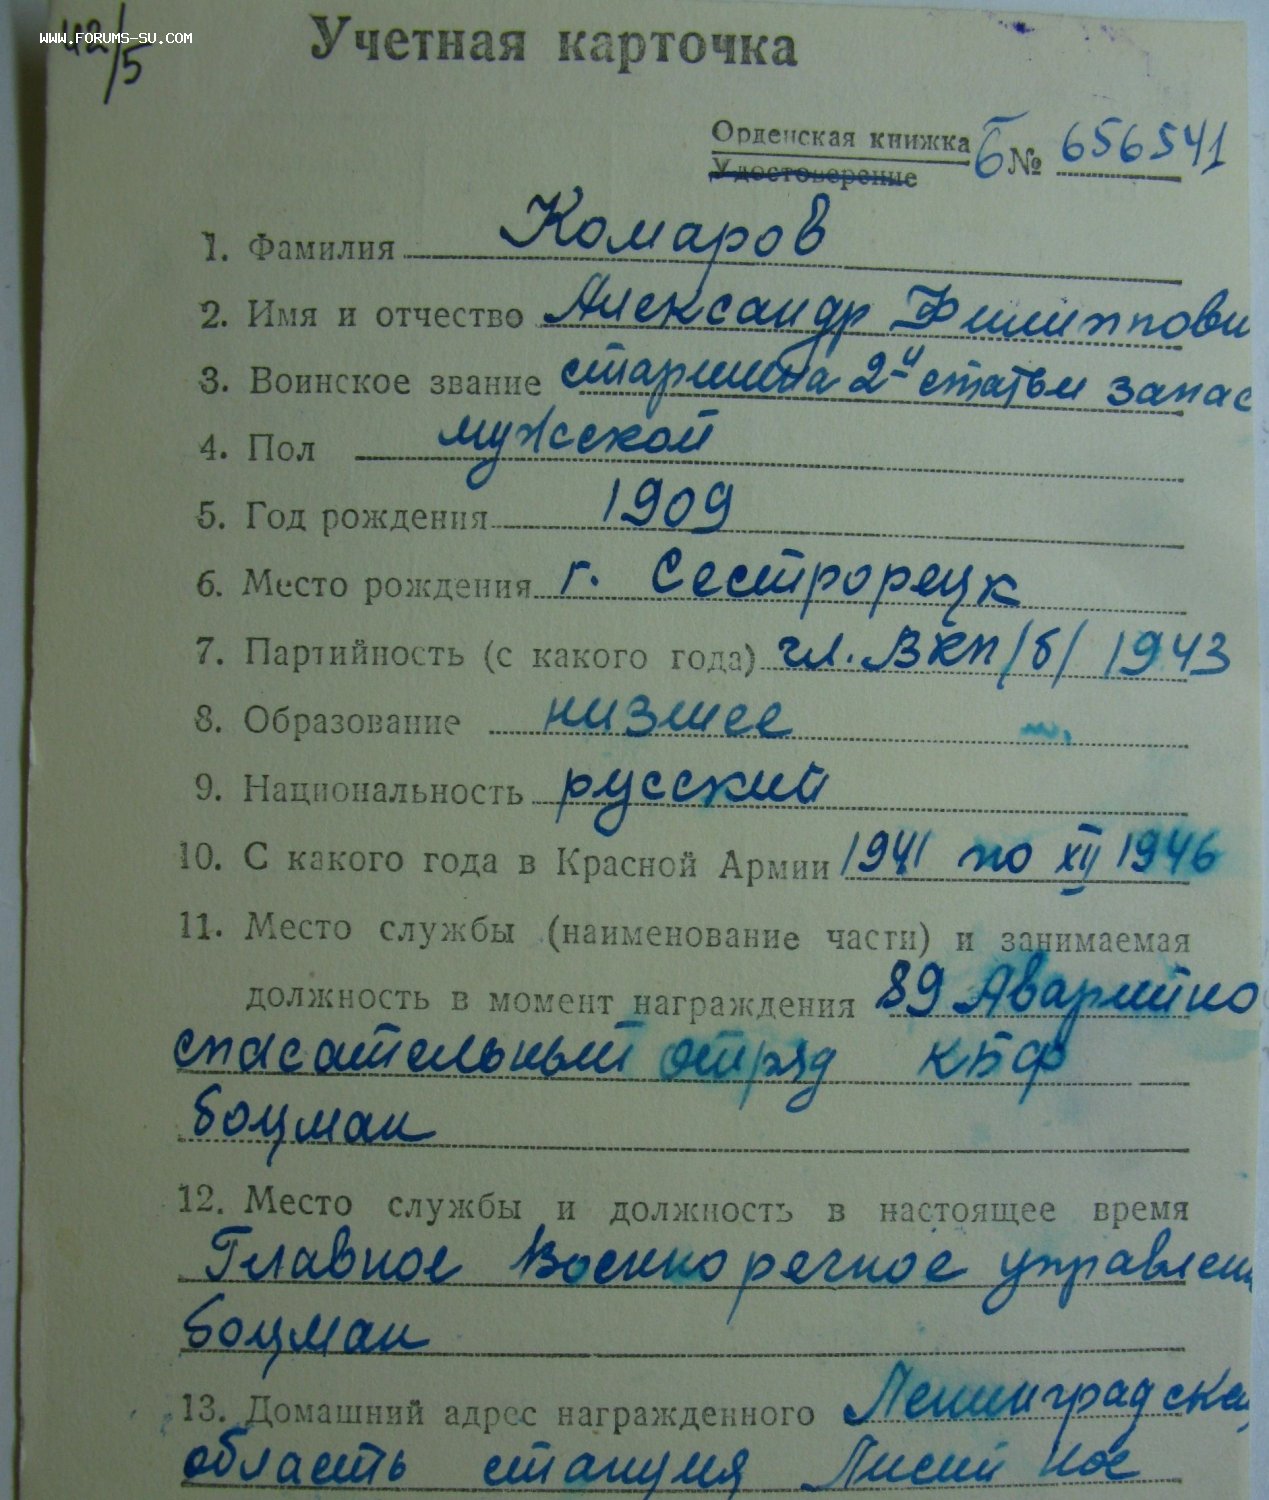 WWW.FORUMS-SU.COM
42/5
Учетная карточка
Орденская книжка Б № 656541
Удостоверение
1. Фамилия Комаров
2. Имя и отчество Александр Филиппови
3. Воинское звание старшина 2й статьи запас
4. Пол мужской
5. Год рождения 1909
6. Место рождения г. Сестрорецк
7. Партийность (с какого года) чл. ВКП/б/ 1943
8. Образование низшее
9. Национальность русский
10. С какого года в Красной Армии 1941 по XII 1946
11. Место службы (наименование части) и занимаемая
должность в момент награждения 89 Аварийно
спасательный отряд КБФ
боцман
12. Место службы и должность в настоящее время
Главное Военноречное управлени
боцман
13. Домашний адрес награжденного Ленинградская
область станция Лисий нос